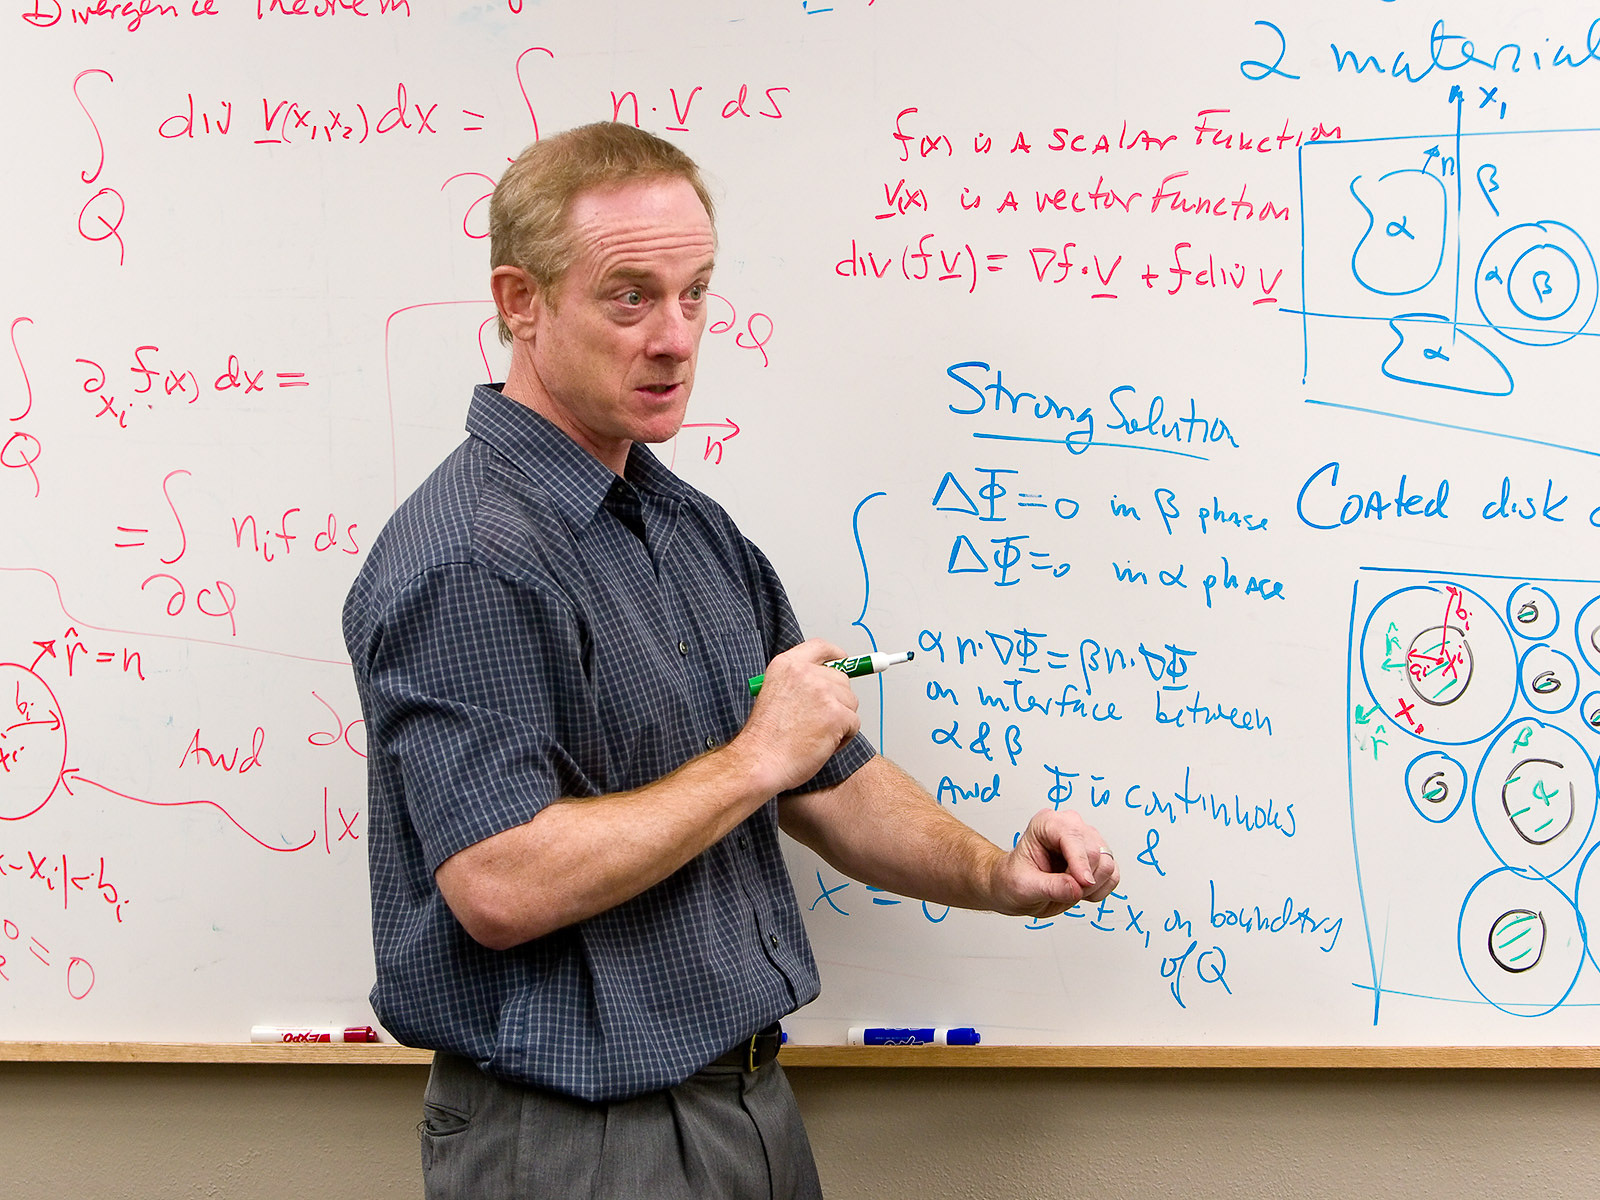 Divergence Theorem
∫ div v(x₁,x₂) dx = ∫ n·v ds
Q ∂
∂Q
n
∫ ∂xᵢ f(x) dx =
Q
= ∫ nᵢ f ds
∂Q
r̂ = n
bᵢ
xᵢ
And
|x
-xᵢ|<bᵢ
= 0
f(x) is a scalar Function
v(x) is a vector Function
div (f v) = ∇f·v + f div v
2 material
x₁
n
β
α
α
β
α
Strong Solution
ΔΦ = 0 in β phase
ΔΦ = 0 in α phase
α n·∇Φ = β n·∇Φ
on interface between
α & β
And Φ is continuous
&
= E x₁ on boundary
of Q
Coated disk
bᵢ
r̂
aᵢ
xᵢ
x
r̂
β
α
EXPO
EXPO